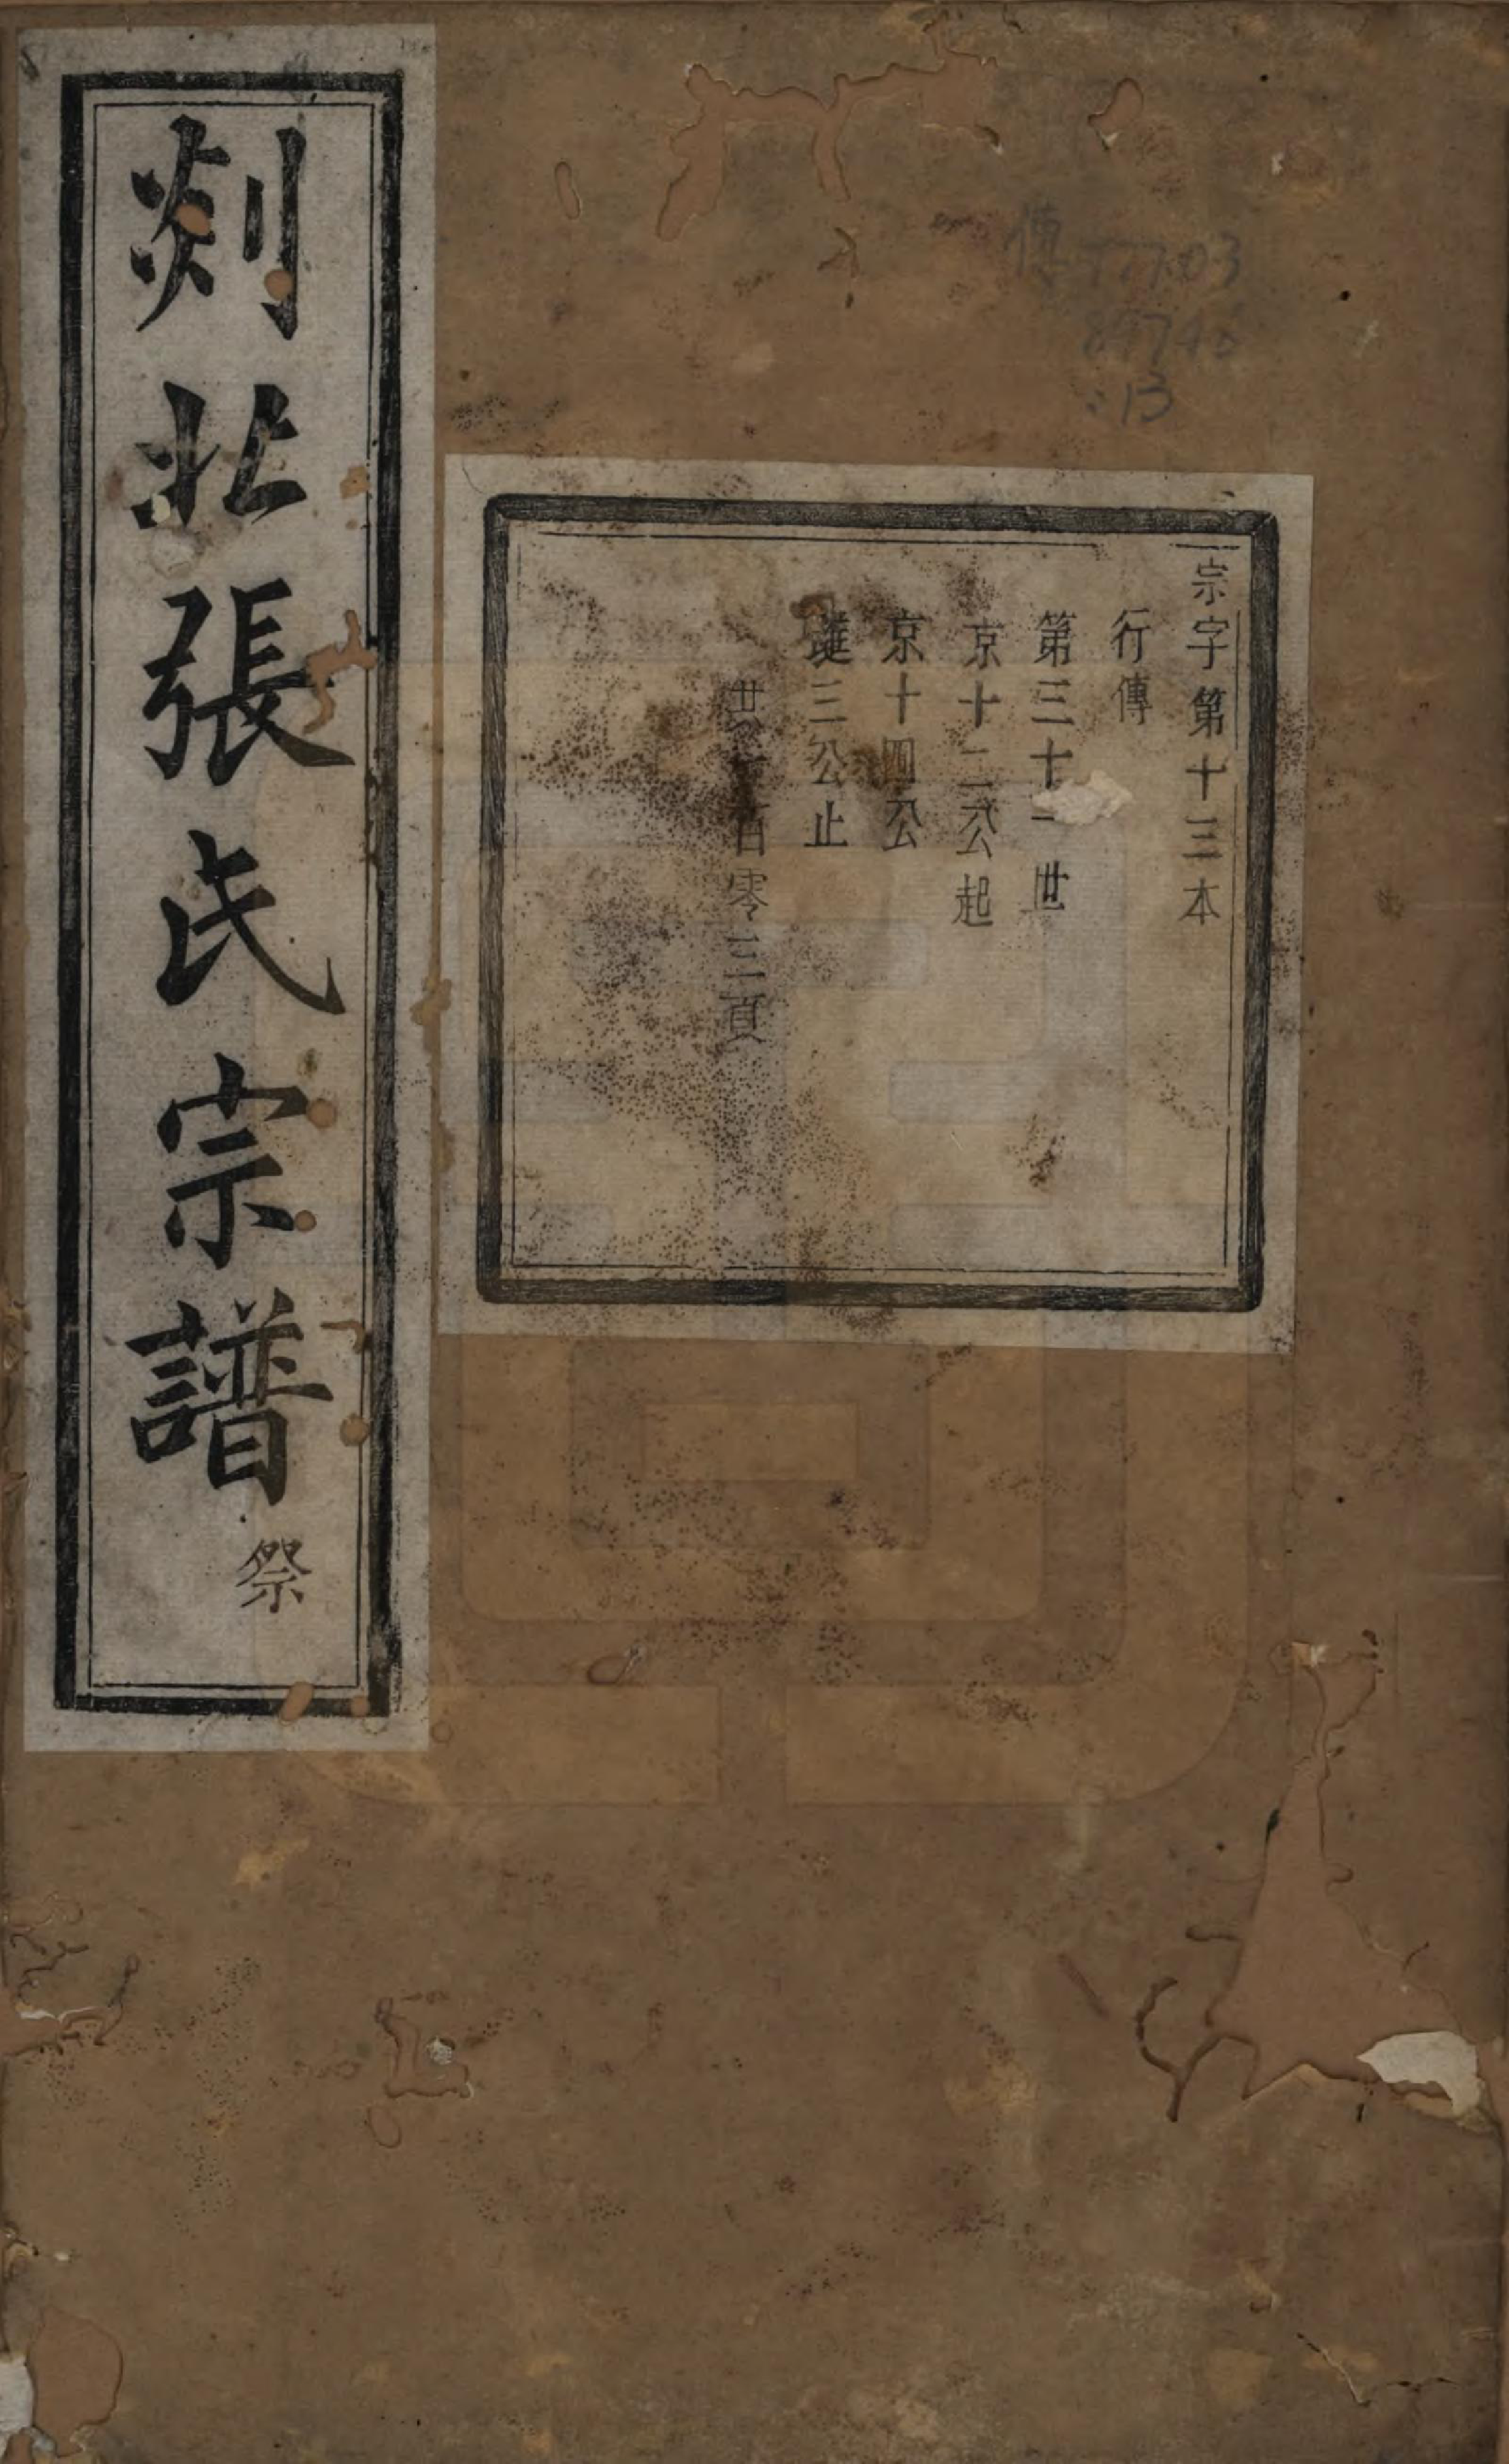 宗字第十三本
行傳
第三十一世
京十二公起
京十四公
三公止
百零三頁
剡北張氏宗譜
祭
傳
:13